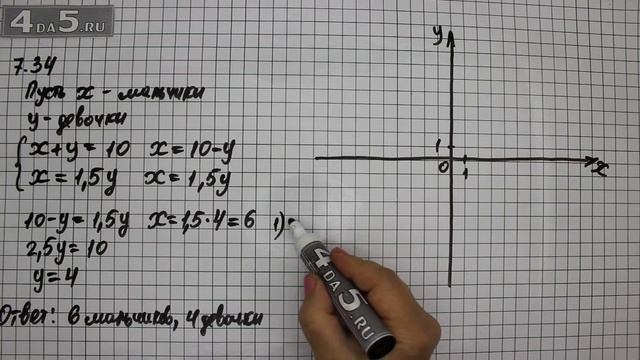 4DA5.RU
7.34
Пусть x - мальчики
y - девочки
{ x+y=10 x=10-y
x=1,5y x=1,5y
10-y=1,5y x=1,5·4=6 1)
2,5y=10
y=4
Ответ: 6 мальчиков, 4 девочки
y
1
0 1 x
4DA5.RU